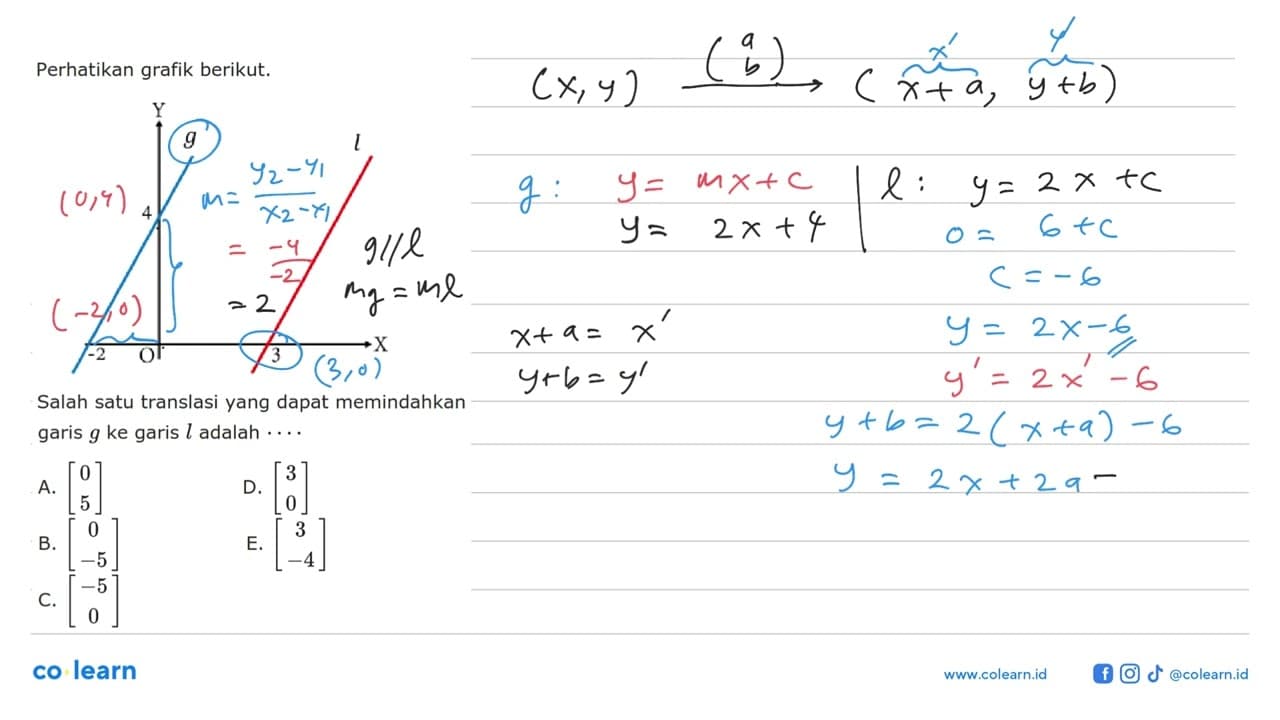 Perhatikan grafik berikut.
Y
g
l
(0,4)
4
m = y₂-y₁ / x₂-x₁
= -4 / -2
= 2
g//l
mg = ml
(-2,0)
-2
O
3
X
(3,0)
Salah satu translasi yang dapat memindahkan
garis g ke garis l adalah ....
A. [0 5]
D. [3 0]
B. [0 -5]
E. [3 -4]
C. [-5 0]
(x,y) (a b) → (x+a, y+b)
x' y'
g : y = mx+c
y = 2x+4
l : y = 2x+c
0 = 6+c
c = -6
y = 2x-6
y' = 2x'-6
x+a = x'
y+b = y'
y+b = 2(x+a)-6
y = 2x+2a-
co learn
www.colearn.id
@colearn.id